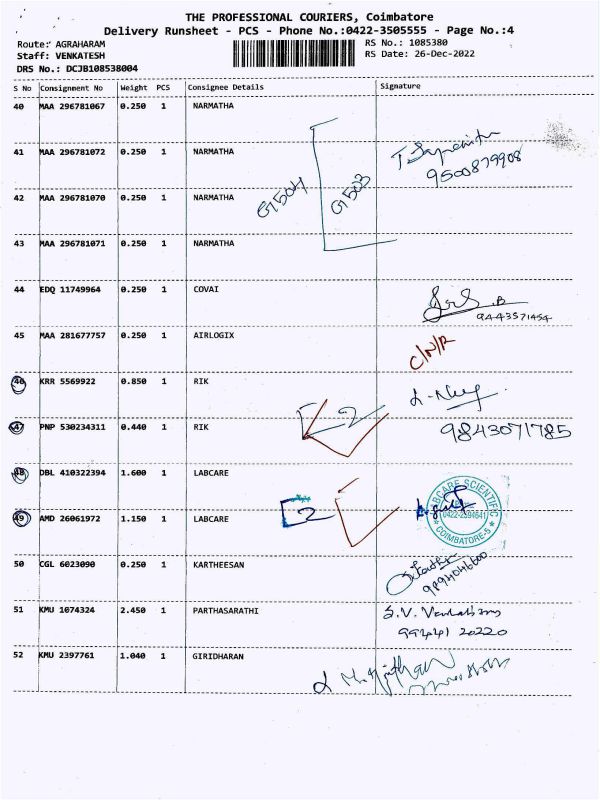 THE PROFESSIONAL COURIERS, Coimbatore
Delivery Runsheet - PCS - Phone No.:0422-3505555 - Page No.:4
Route: AGRAHARAM
RS No.: 1085380
Staff: VENKATESH
RS Date: 26-Dec-2022
DRS No.: DCJB108538004
S No Consignment No Weight PCS Consignee Details Signature
40 MAA 296781067 0.250 1 NARMATHA
41 MAA 296781072 0.250 1 NARMATHA
9500879908
42 MAA 296781070 0.250 1 NARMATHA
G504 G503
43 MAA 296781071 0.250 1 NARMATHA
44 EDQ 11749964 0.250 1 COVAI
9443571454
45 MAA 281677757 0.250 1 AIRLOGIX C/N/R
46 KRR 5569922 0.850 1 RIK
2
47 PNP 530234311 0.440 1 RIK 9843071785
48 DBL 410322394 1.600 1 LABCARE
2
49 AMD 26061972 1.150 1 LABCARE
LABCARE SCIENTIFIC
COIMBATORE-5
50 CGL 6023090 0.250 1 KARTHEESAN
51 KMU 1074324 2.450 1 PARTHASARATHI
99441 20220
52 KMU 2397761 1.040 1 GIRIDHARAN